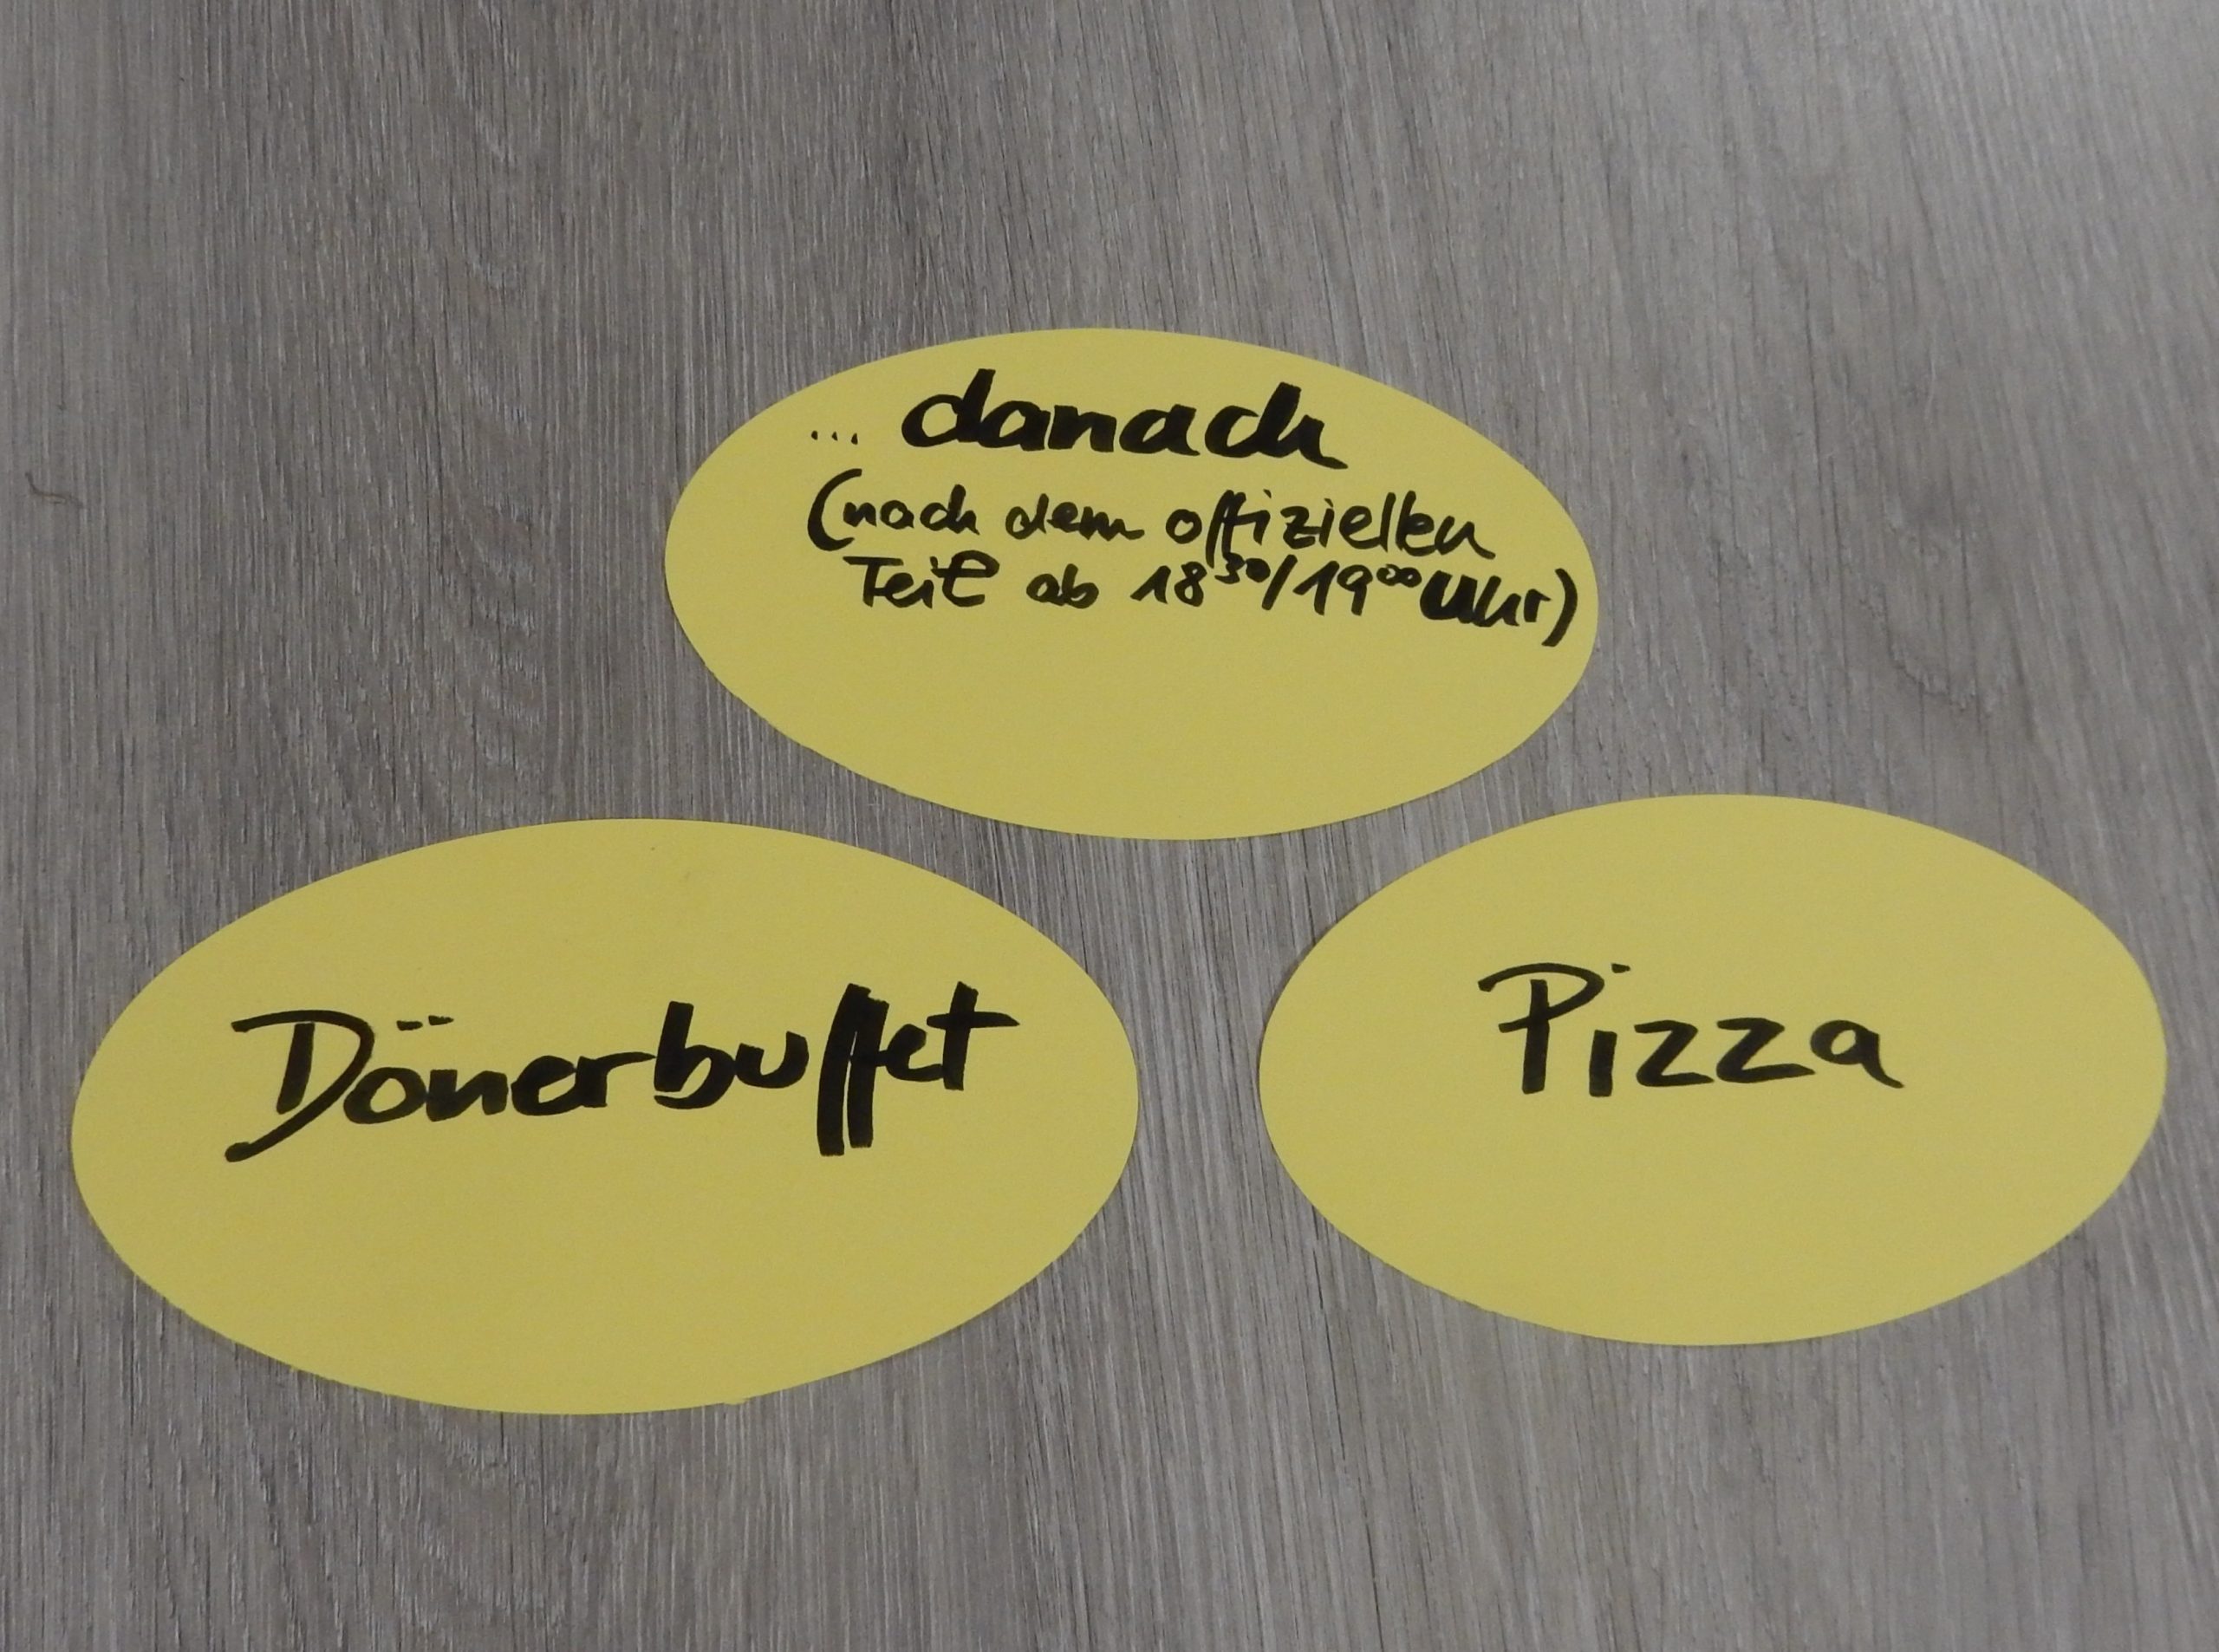 ... danach
(nach dem offiziellen
Teil ab 18³⁰/19⁰⁰ Uhr)
Dönerbuffet
Pizza